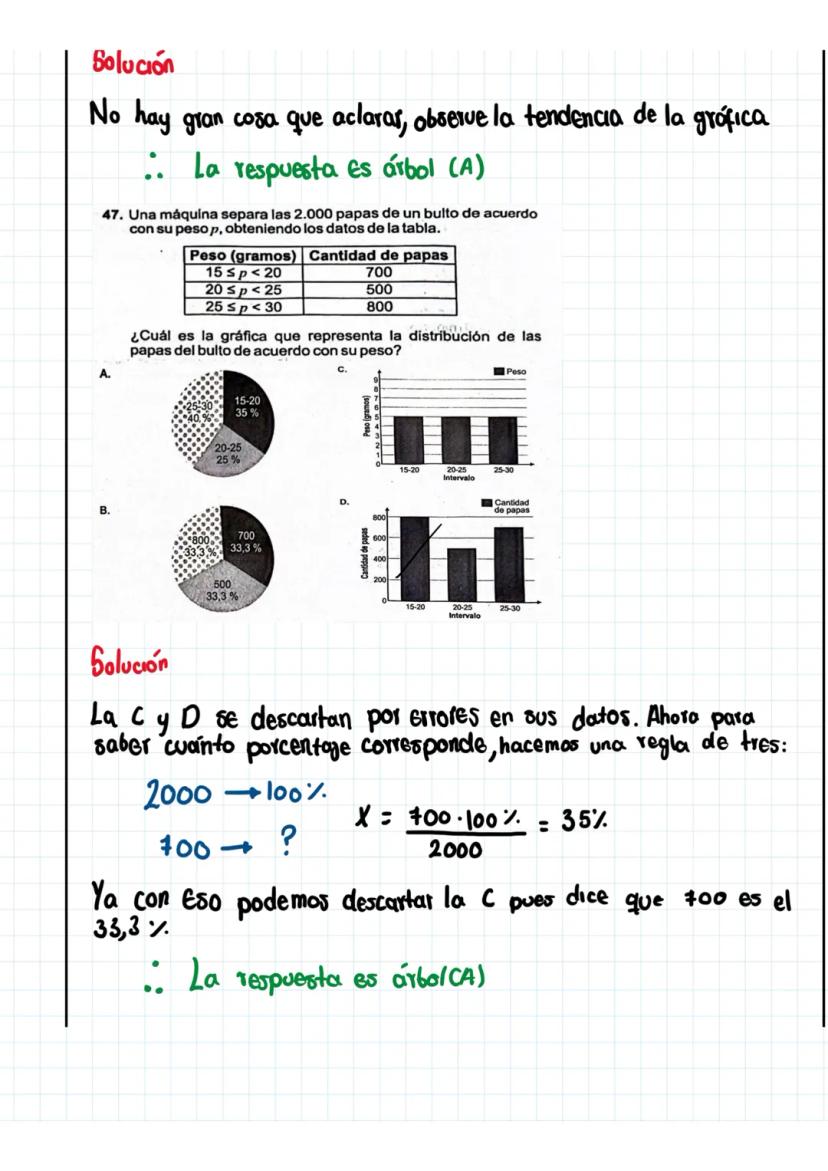 Solución
No hay gran cosa que aclarar, observe la tendencia de la gráfica
∴ La respuesta es árbol (A)
47. Una máquina separa las 2.000 papas de un bulto de acuerdo
con su peso p, obteniendo los datos de la tabla.
Peso (gramos) Cantidad de papas
15 ≤ p < 20 700
20 ≤ p < 25 500
25 ≤ p < 30 800
¿Cuál es la gráfica que representa la distribución de las
papas del bulto de acuerdo con su peso?
A.
25-30
40 %
15-20
35 %
20-25
25 %
C.
Peso
Peso (gramos)
9
8
7
6
5
4
3
2
1
0
15-20 20-25 25-30
Intervalo
B.
800
33,3 %
700
33,3 %
500
33,3 %
D.
Cantidad
de papas
Cantidad de papas
800
600
400
200
0
15-20 20-25 25-30
Intervalo
Solución
La C y D se descartan por errores en sus datos. Ahora para
saber cuánto porcentaje corresponde, hacemos una regla de tres:
2000 → 100%
700 → ?
X = 700 · 100 % / 2000 = 35%
Ya con eso podemos descartar la C pues dice que 700 es el
33,3 %
∴ La respuesta es árbol (A)